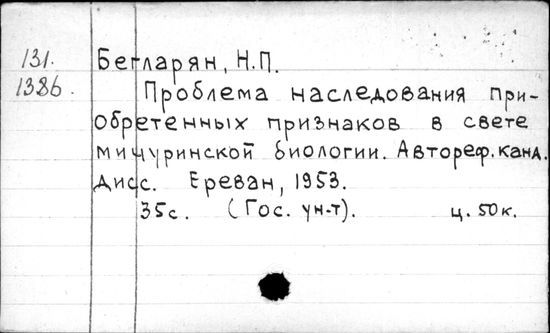 131. Бегларян, Н.П.
1386. Проблема наследования при-
обретенных признаков в свете
мичуринской биологии. Автореф. канд.
дисс. Ереван, 1953.
35с. (Гос. ун-т). ц. 50к.